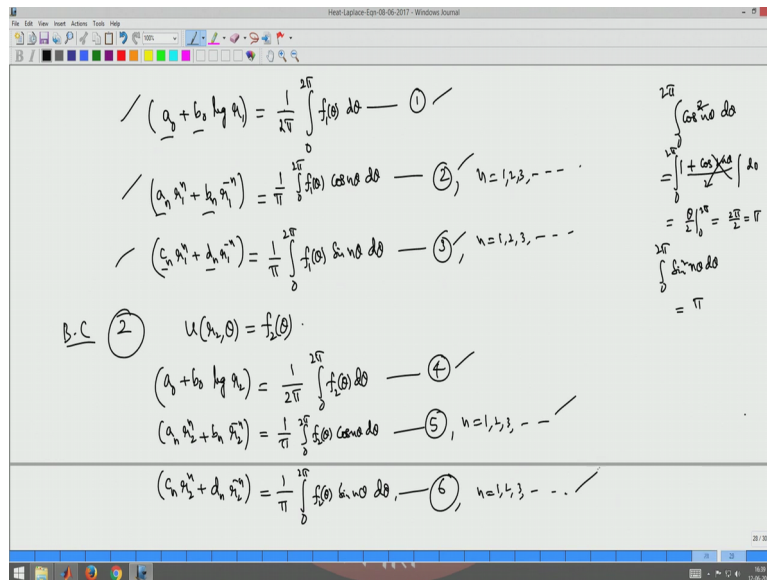 Heat-Laplace-Eqn-08-06-2017 - Windows Journal
File Edit View Insert Actions Tools Help
100%
B I
(a₀ + b₀ log r₁) = 1/2π ∫₀^2π f₁(θ) dθ — ①
(aₙ r₁ⁿ + bₙ r₁⁻ⁿ) = 1/π ∫₀^2π f₁(θ) cos nθ dθ — ②, n=1,2,3, - - - -
(cₙ r₁ⁿ + dₙ r₁⁻ⁿ) = 1/π ∫₀^2π f₁(θ) sin nθ dθ — ③, n=1,2,3, - - -
B.C ② u(r₂,θ) = f₂(θ).
(a₀ + b₀ log r₂) = 1/2π ∫₀^2π f₂(θ) dθ — ④
(aₙ r₂ⁿ + bₙ r₂⁻ⁿ) = 1/π ∫₀^2π f₂(θ) cos nθ dθ — ⑤, n=1,2,3, - -
(cₙ r₂ⁿ + dₙ r₂⁻ⁿ) = 1/π ∫₀^2π f₂(θ) sin nθ dθ, — ⑥, n=1,2,3, - - ..
∫₀^2π cos²nθ dθ
= θ/2 |₀^2π = 2π/2 = π
∫₀^2π sin²nθ dθ
= π
28 / 30
24 25
16:39
12-06-20